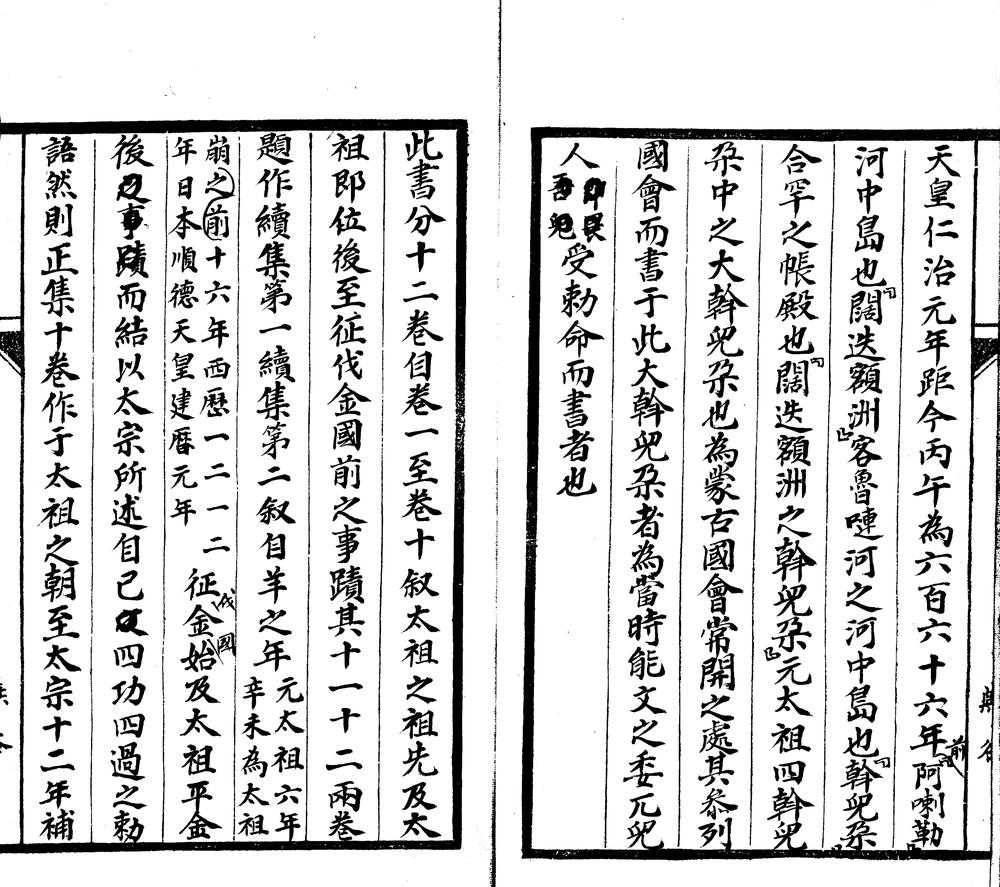 天皇仁治元年距今丙午為六百六十六年前阿喇勒
河中島也闊迭額洲客魯嗹河之河中島也斡兒朶
合罕之帳殿也闊迭額洲之斡兒朶元太祖四斡兒
朶中之大斡兒朶也為蒙古國會常開之處其叅列
國會而書于此大斡兒朶者為當時能文之委兀兒
人即畏吾兒受勅命而書者也
此書分十二卷自卷一至卷十叙太祖之祖先及太
祖即位後至征伐金國前之事蹟其十一十二兩卷
題作續集第一續集第二叙自羊之年元太祖六年辛未為太祖
崩之前十六年西歷一二一二年日本順德天皇建曆元年征伐金國始及太祖平金
後之事蹟而結以太宗所述自己四功四過之勅
語然則正集十卷作于太祖之朝至太宗十二年補